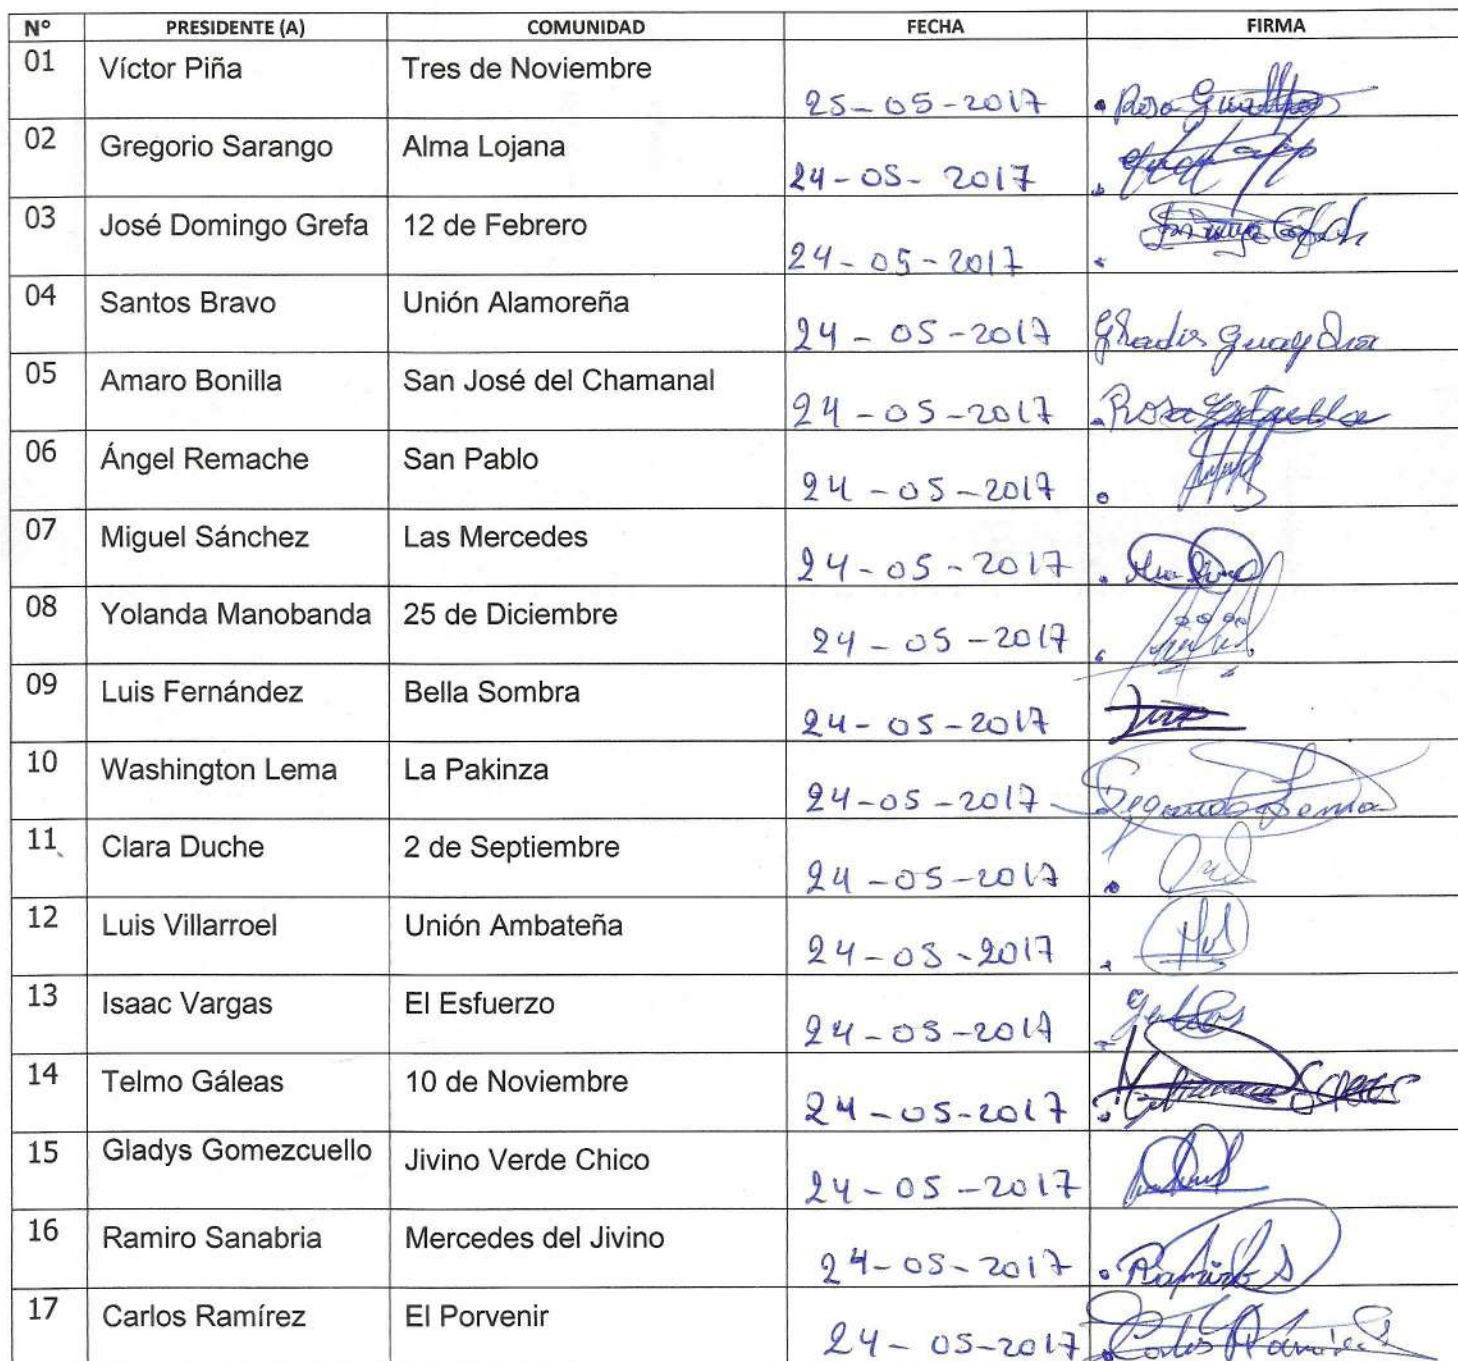 Nº PRESIDENTE (A) COMUNIDAD FECHA FIRMA
01 Víctor Piña Tres de Noviembre 25-05-2017 Rosa
02 Gregorio Sarango Alma Lojana 24-05-2017
03 José Domingo Grefa 12 de Febrero 24-05-2017
04 Santos Bravo Unión Alamoreña 24-05-2017
05 Amaro Bonilla San José del Chamanal 24-05-2017 Rosa
06 Ángel Remache San Pablo 24-05-2017
07 Miguel Sánchez Las Mercedes 24-05-2017
08 Yolanda Manobanda 25 de Diciembre 24-05-2017
09 Luis Fernández Bella Sombra 24-05-2017
10 Washington Lema La Pakinza 24-05-2017 Segundo Lema
11 Clara Duche 2 de Septiembre 24-05-2017
12 Luis Villarroel Unión Ambateña 24-05-2017
13 Isaac Vargas El Esfuerzo 24-05-2017
14 Telmo Gáleas 10 de Noviembre 24-05-2017
15 Gladys Gomezcuello Jivino Verde Chico 24-05-2017
16 Ramiro Sanabria Mercedes del Jivino 24-05-2017 Ramiro S
17 Carlos Ramírez El Porvenir 24-05-2017 Carlos Ramírez